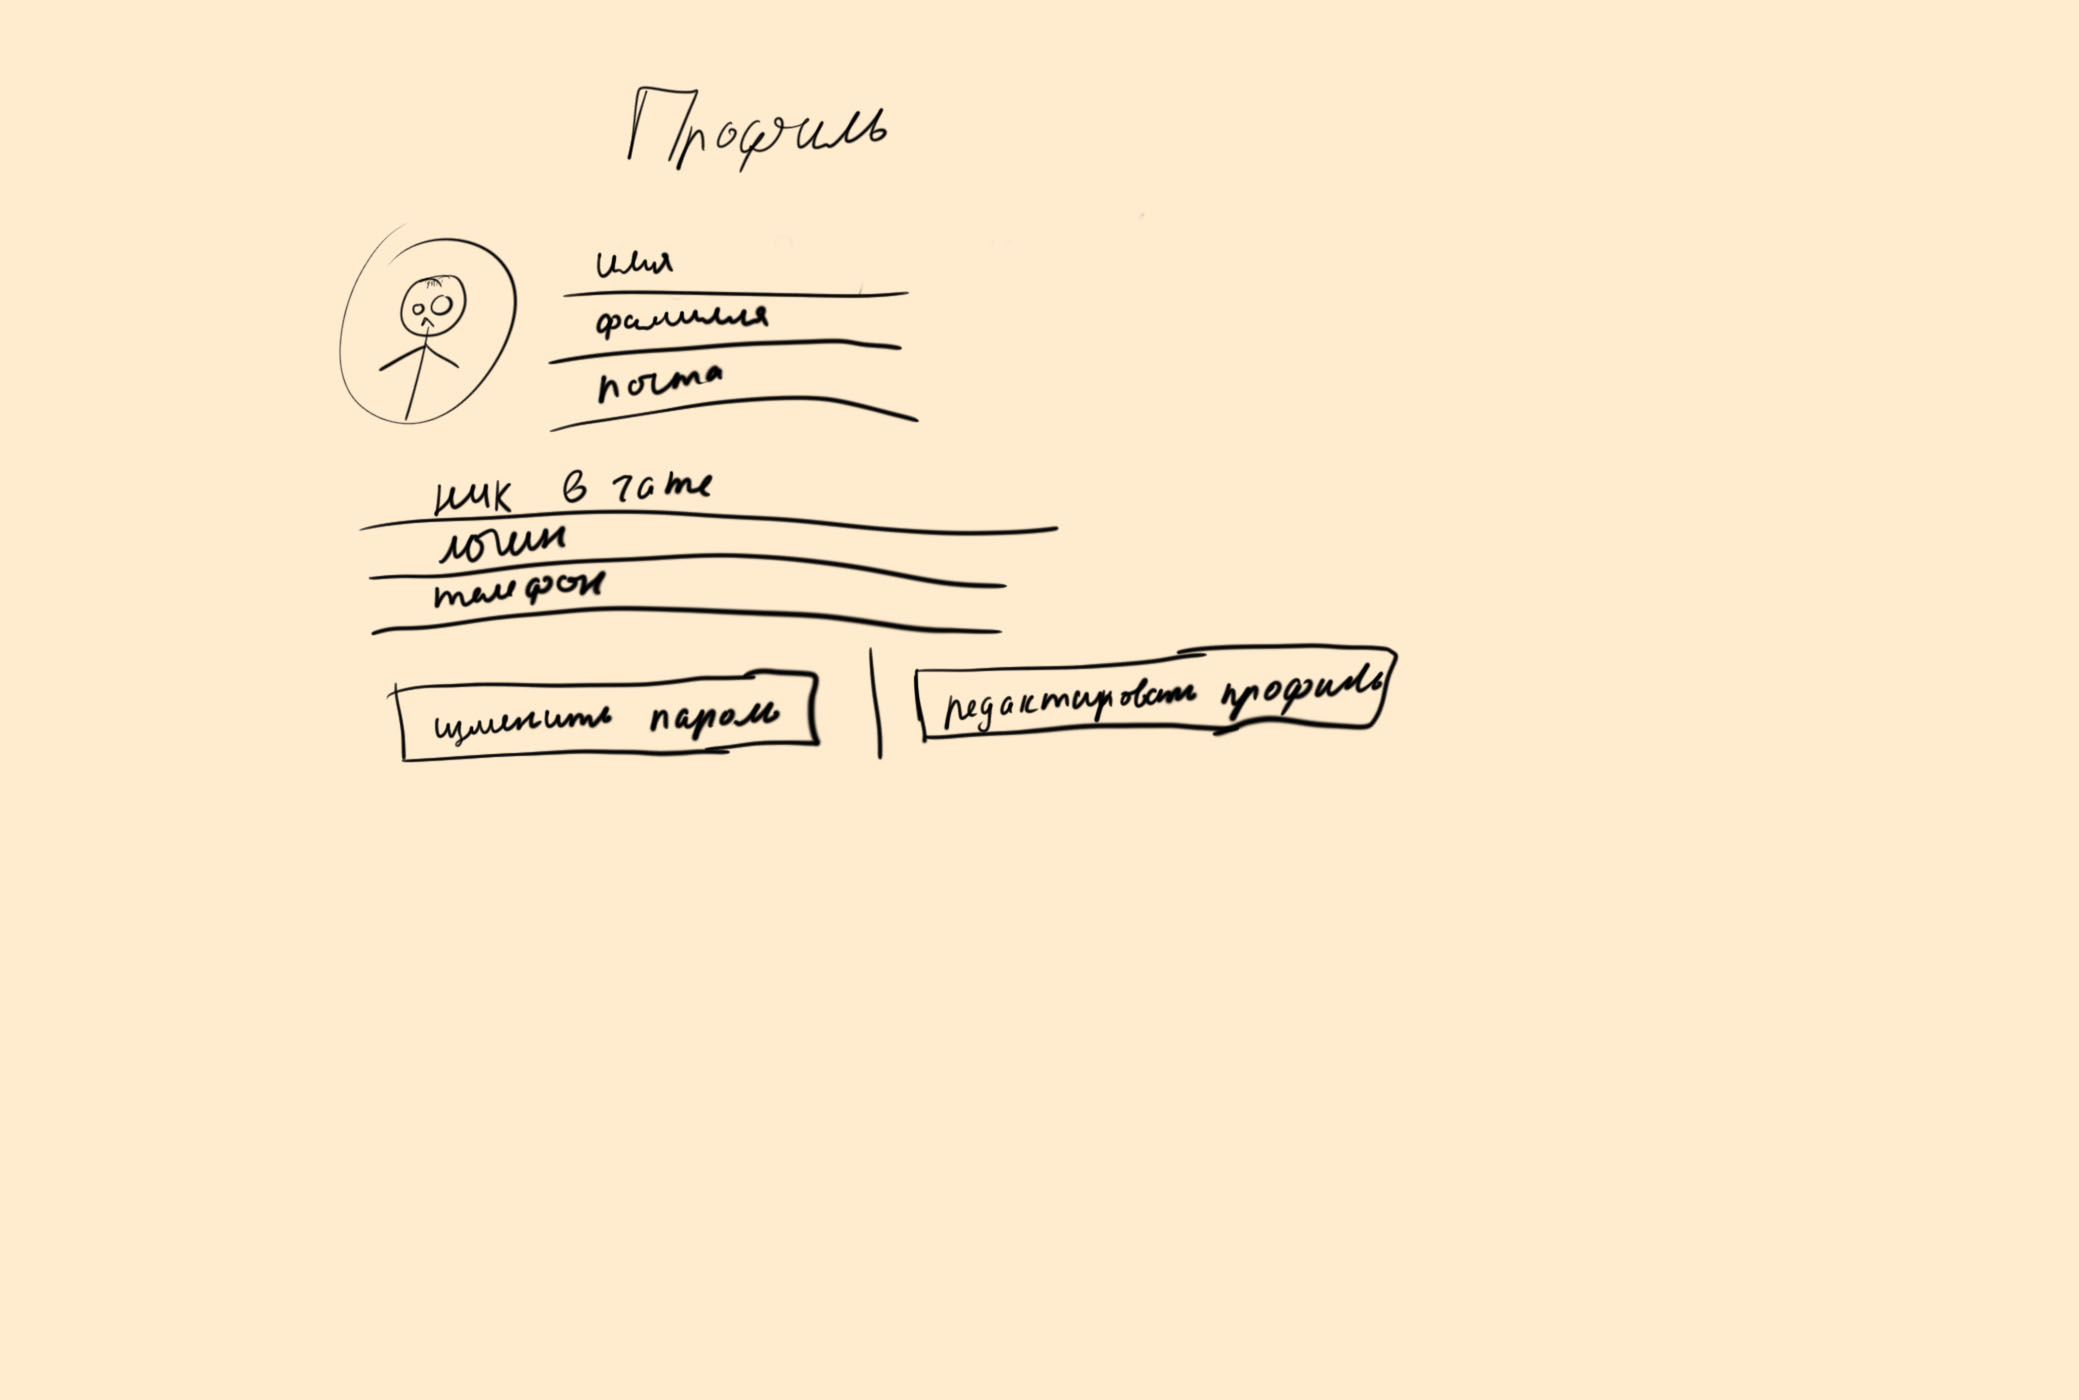 Профиль
имя
фамилия
почта
ник в чате
логин
телефон
изменить пароль
редактировать профиль